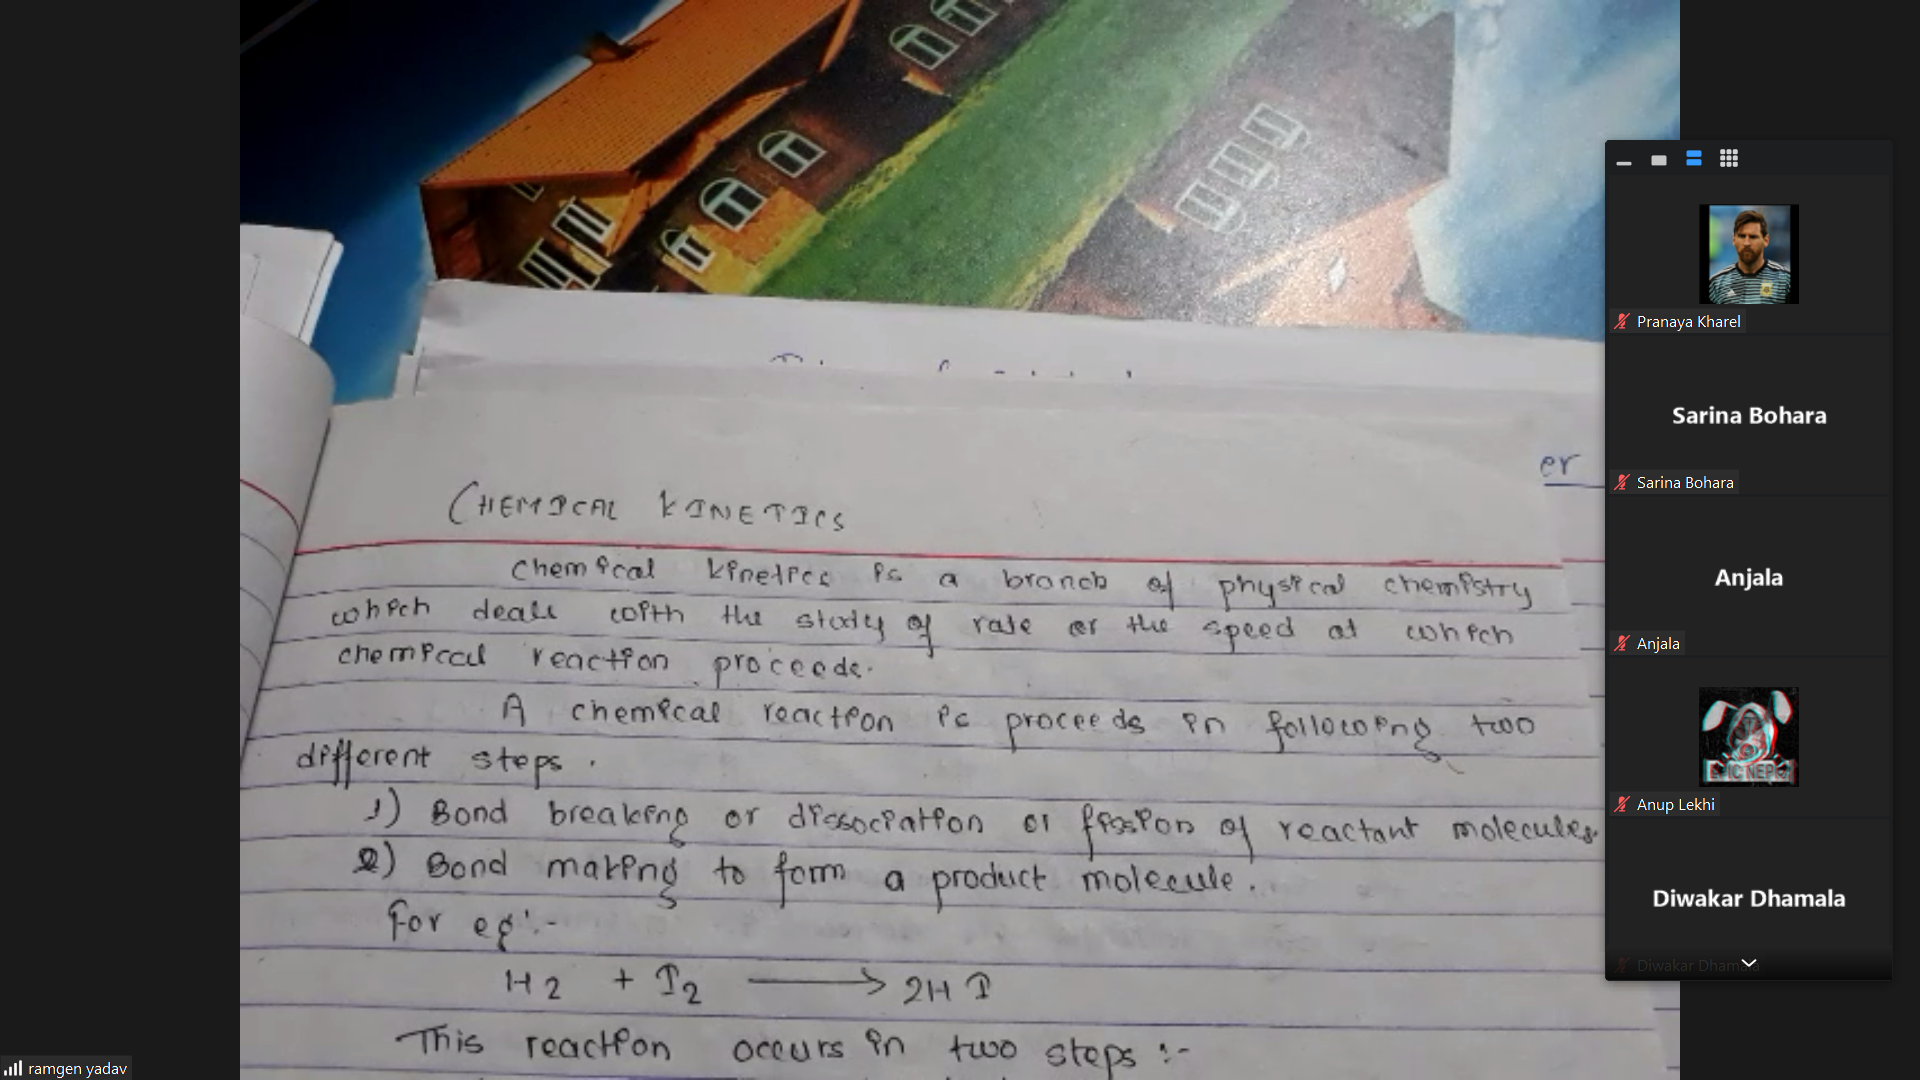 er
CHEMICAL KINETICS
chemical kinetics is a branch of physical chemistry
which deals with the study of rate or the speed at which
chemical reaction proceeds.
A chemical reaction is proceeds in following two
different steps.
1) Bond breaking or dissociation or fission of reactant molecules.
2) Bond making to form a product molecule.
For eg:-
H2 + I2 ⟶ 2HI
This reaction occurs in two steps:-
Pranaya Kharel
Sarina Bohara
Sarina Bohara
Anjala
Anjala
Anup Lekhi
Diwakar Dhamala
Diwakar Dhamala
ramgen yadav